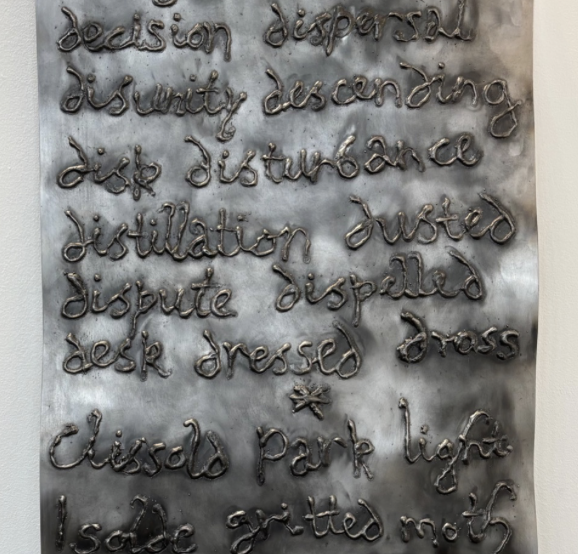 decision dispersal
disunity descending
disk disturbance
distillation dusted
dispute dispelled
desk dressed dross
*
Clissold Park light
Isolde gritted moth